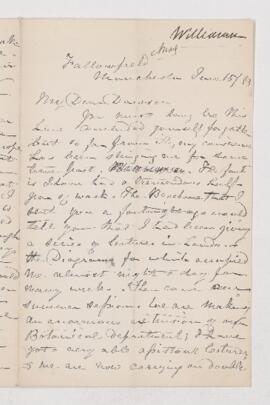 Williamson
Fallowfield
Manchester June 15/83
My Dear Dawson
You must long ere this
have considered yourself forgotten
but so I am Guilty, my conscience
has been stinging me for some
time past. The fact
is I have had a tremendous
of work. The Brochure that I
sent you a fortnight ago would
tell you that I had been giving
a series of lectures in London
the Diagrams for which occupied
me almost night & day for
many weeks. Then came our
summer session. We are making
an enormous extension of our
Botanical Department; & I have
got a very able assistant Lecturer
& we are now carrying on double